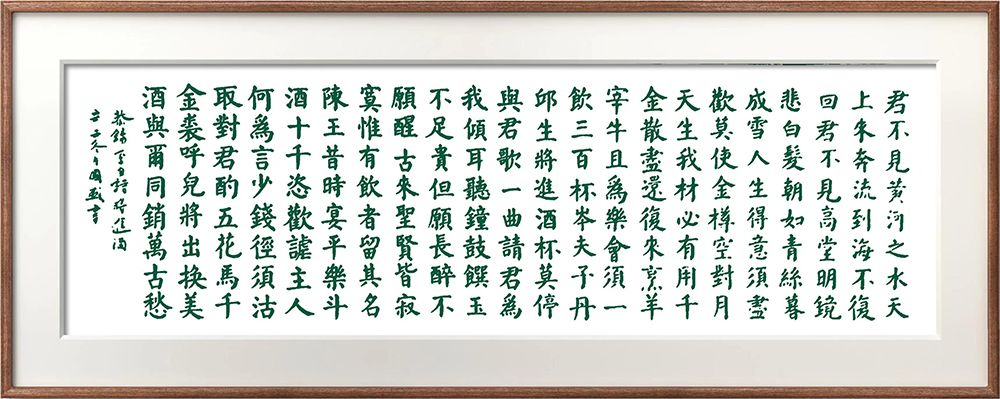 君不見黃河之水天
上來奔流到海不復
回君不見高堂明鏡
悲白髮朝如青絲暮
成雪人生得意須盡
歡莫使金樽空對月
天生我材必有用千
金散盡還復來烹羊
宰牛且爲樂會須一
飲三百杯岑夫子丹
邱生將進酒杯莫停
與君歌一曲請君爲
我傾耳聽鐘鼓饌玉
不足貴但願長醉不
願醒古來聖賢皆寂
寞惟有飲者留其名
陳王昔時宴平樂斗
酒十千恣歡謔主人
何爲言少錢徑須沽
取對君酌五花馬千
金裘呼兒將出換美
酒與爾同銷萬古愁
恭錄李白詩將進酒
月國盛書